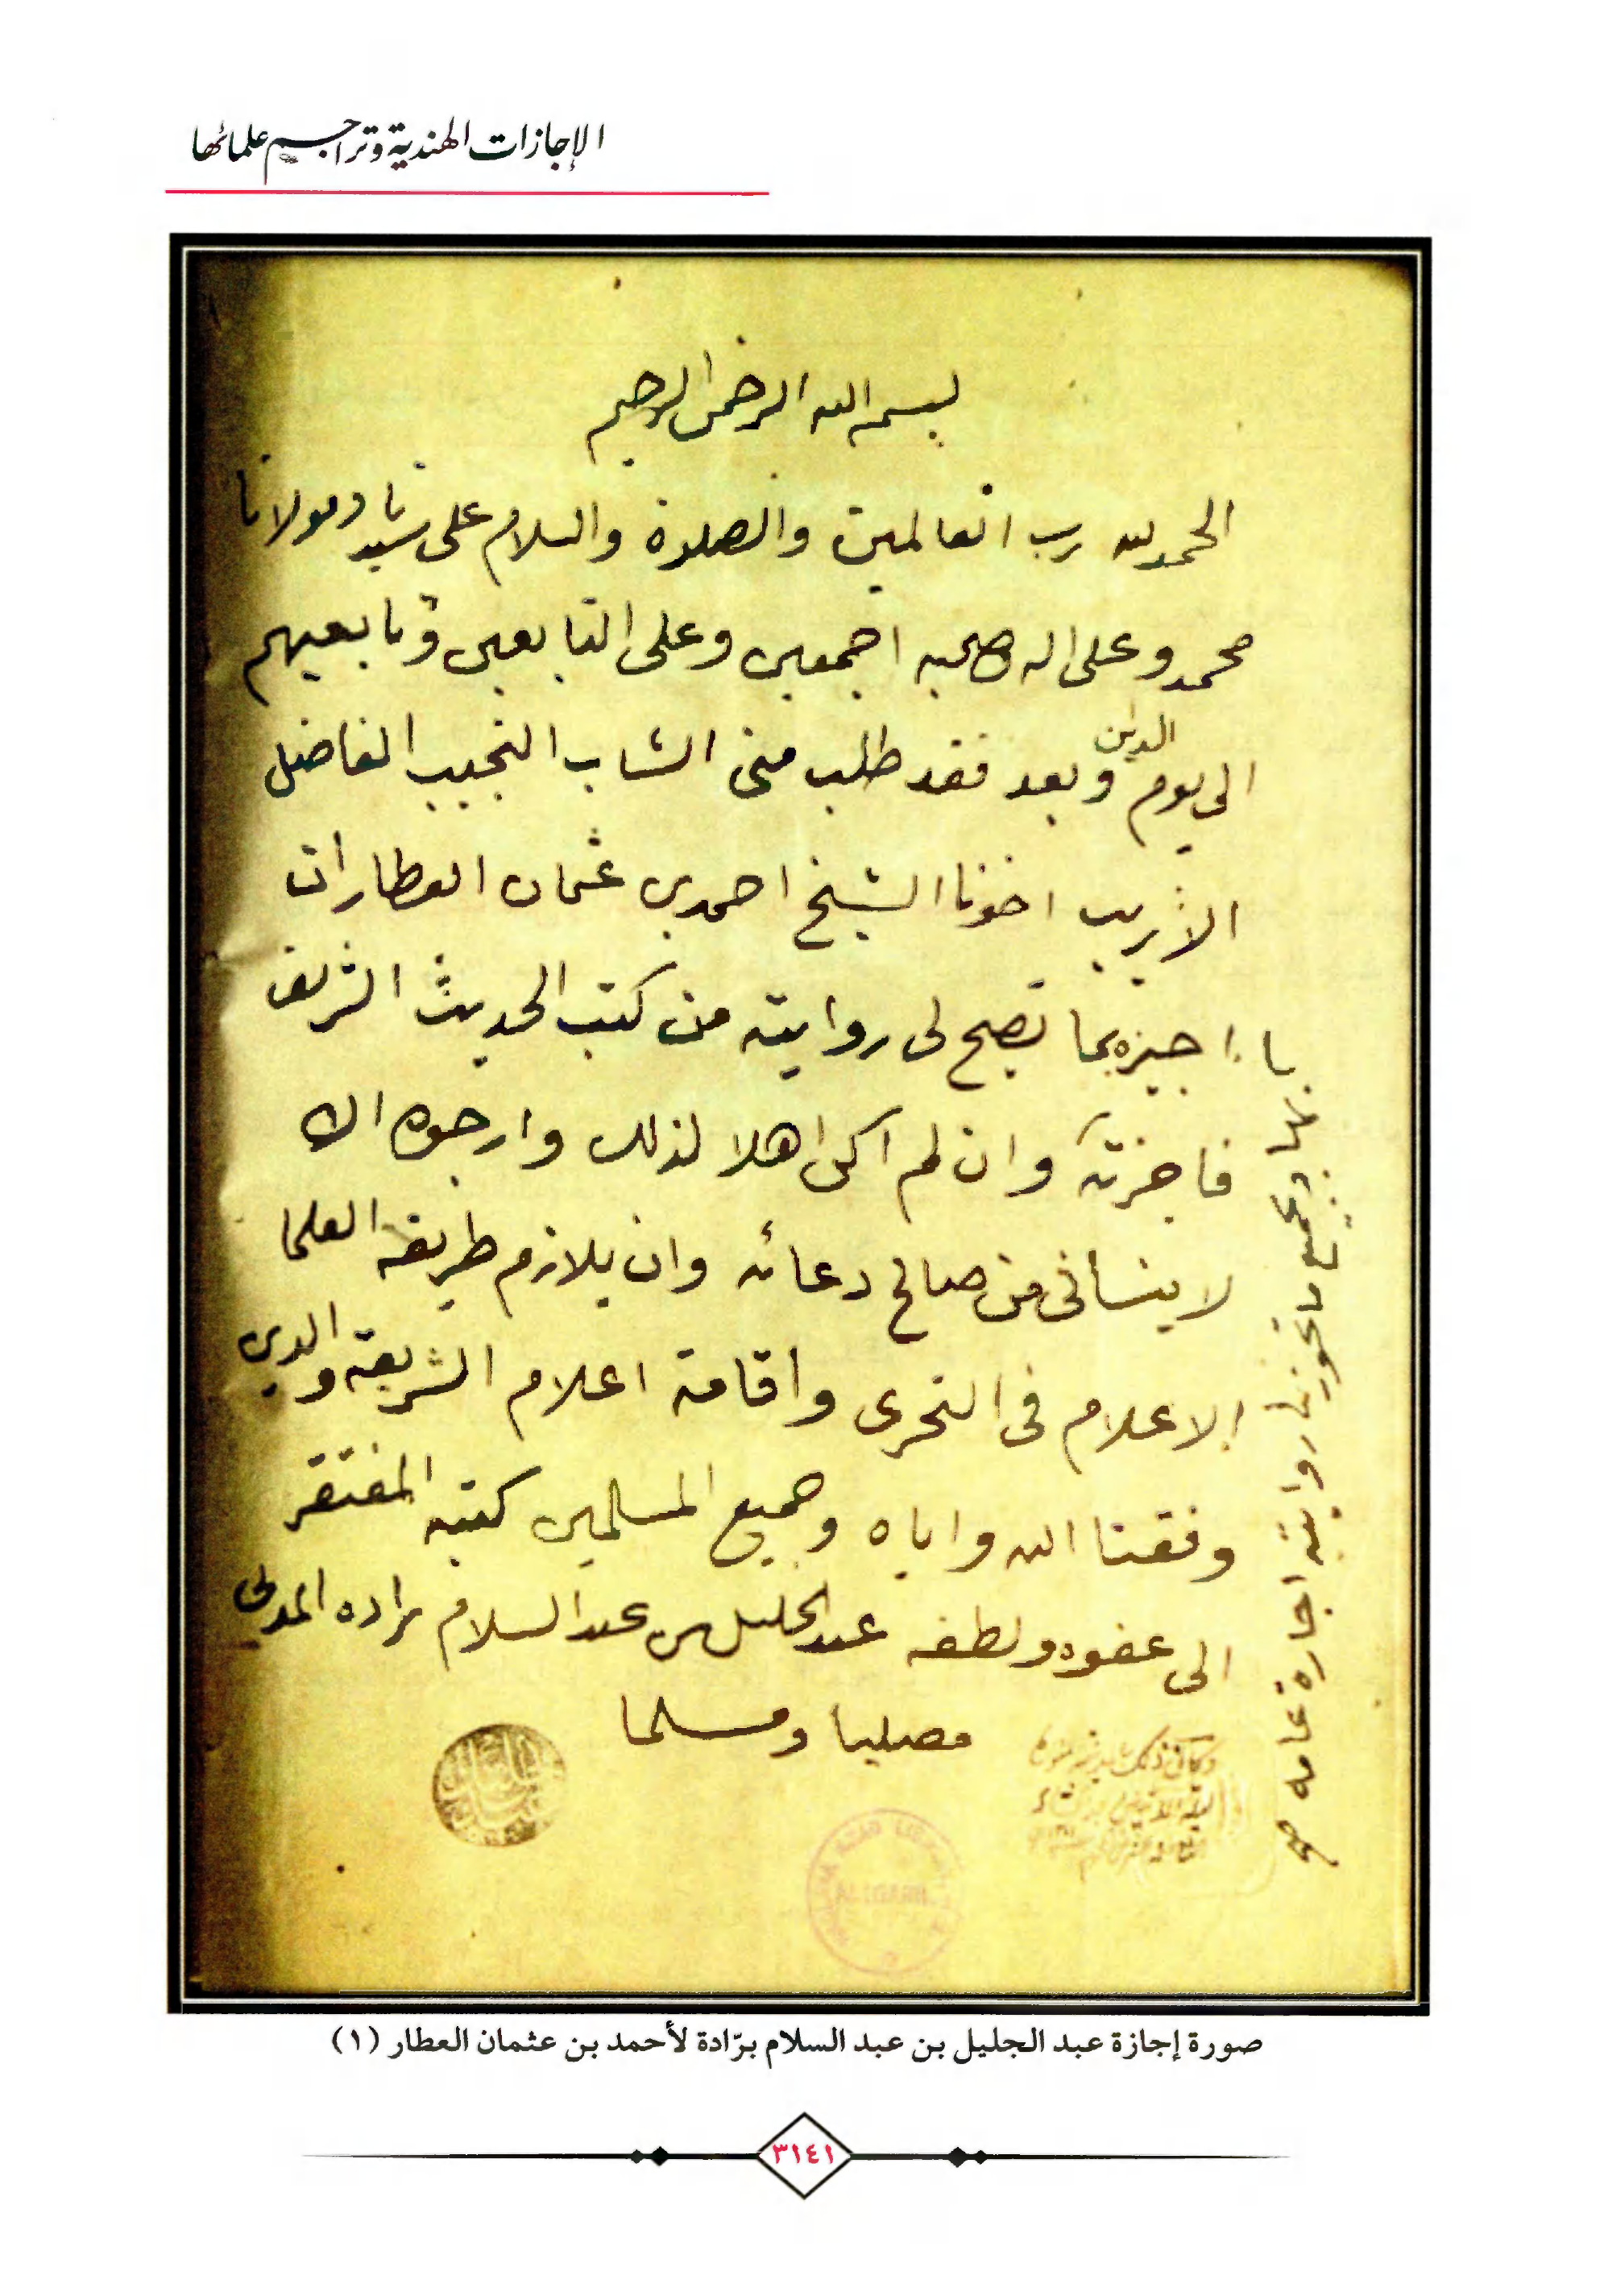 الإجازات الهندية وتراجم علمائها
بسم الله الرحمن الرحيم
الحمد لله رب العالمين والصلوة والسلام على سيدنا ومولانا
محمد وعلى اله وصحبه اجمعين وعلى التابعين وتابعيهم
الى يوم الدين وبعد فقد طلب منى الشاب النجيب الفاضل
الاريب اخونا الشيخ احمد بن عثمان العطار ان
اجيزه بما تصح لى روايته من كتب الحديث الشريف
فاجزته وان لم اكن اهلا لذلك وارجوه ان
لا ينسانى من صالح دعائه وان يلازم طريقة العلما
الاعلام فى التحرى واقامة اعلام الشريعة والدين
وفقنا الله واياه وجميع المسلمين كتبه المفتقر
الى عفوه ولطفه عبد الجليل بن عبد السلام براده المدنى
مصليا ومسلما
بها وبجميع ما تجوز لى روايته اجازة عامه صح
وكان ذلك
ALIGARH
صورة إجازة عبد الجليل بن عبد السلام برّادة لأحمد بن عثمان العطار (١)
٣١٤١